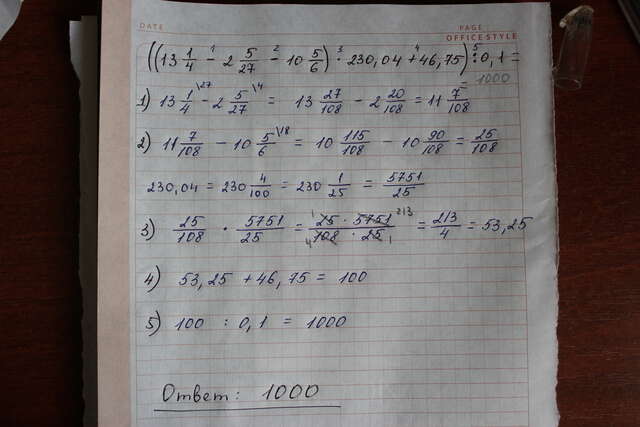 DATE PAGE
OFFICE STYLE
((13 1/4 - 2 5/27 - 10 5/6) · 230,04 + 46,75) : 0,1 =
= 1000
1) 13 1/4 - 2 5/27 = 13 27/108 - 2 20/108 = 11 7/108
2) 11 7/108 - 10 5/6 = 10 115/108 - 10 90/108 = 25/108
230,04 = 230 4/100 = 230 1/25 = 5751/25
3) 25/108 · 5751/25 = 25 · 5751/108 · 25 = 213/4 = 53,25
4) 53,25 + 46,75 = 100
5) 100 : 0,1 = 1000
Ответ: 1000